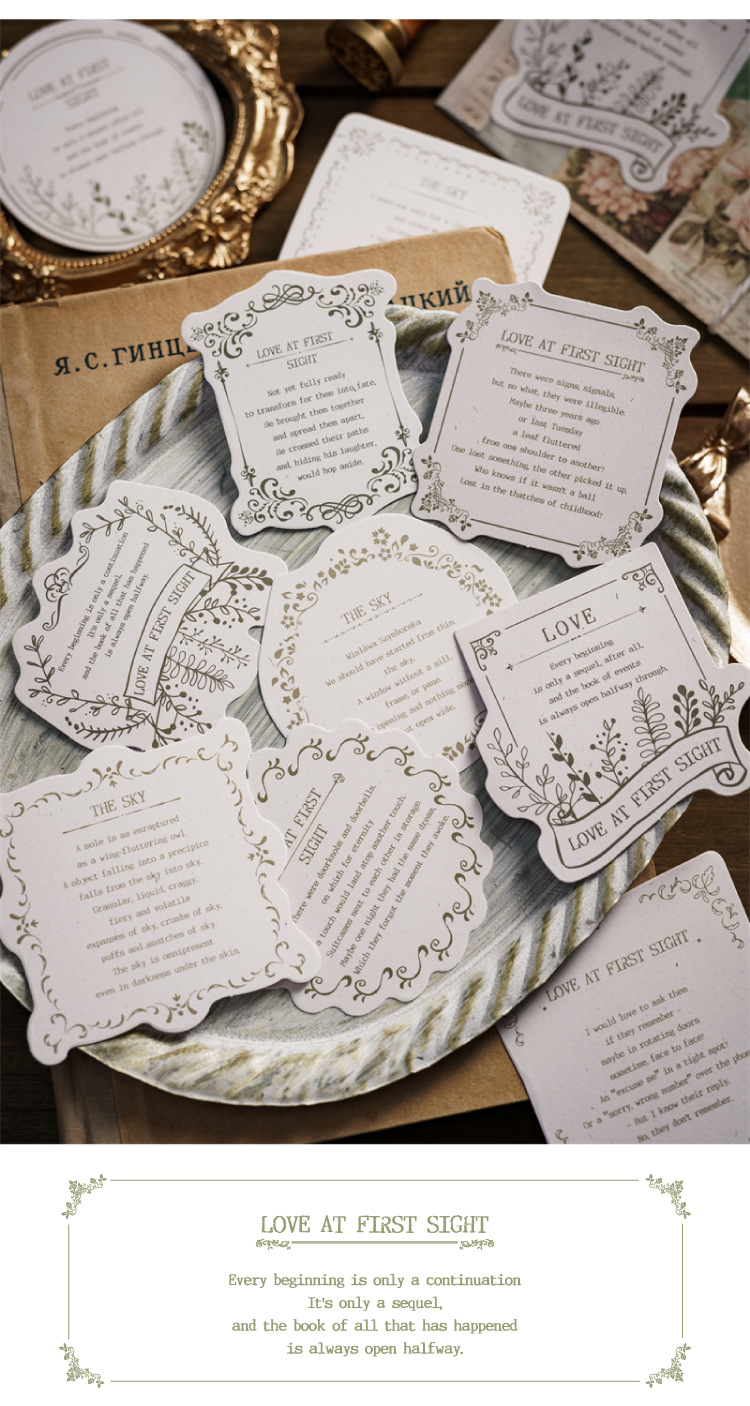 LOVE AT FIRST
SIGHT
Every beginning
is only a sequel, after all,
and the book of events
LOVE AT FIRST SIGHT
THE SKY
Я.С.ГИНЦ
ЦКИЙ
LOVE AT FIRST
SIGHT
Not yet fully ready
to transform for them into fate,
He brought them together
and spread them apart,
He crossed their paths
and, hiding his laughter,
would hop aside.
LOVE AT FIRST SIGHT
There were signs, signals,
but so what, they were illegible.
Maybe three years ago
or last Tuesday
a leaf fluttered
from one shoulder to another?
One lost something, the other picked it up,
Who knows if it wasn't a ball
Lost in the thatches of childhood?
Every beginning is only a continuation
It's only a sequel,
and the book of all that has happened
is always open halfway.
LOVE AT FIRST SIGHT
THE SKY
Wislawa Szymborska
We should have started from this,
the sky,
A window without a sill,
frame, or pane.
opening, and nothing more
open wide.
LOVE
Every beginning
is only a sequel, after all,
and the book of events
is always open halfway through.
LOVE AT FIRST SIGHT
THE SKY
A mole is as enraptured
as a wing-fluttering owl.
A object falling into a precipice
falls from the sky into sky.
Granular, liquid, craggy,
fiery and volatile
expanses of sky, crumbs of sky,
puffs and snatches of sky.
The sky is omnipresent
even in darkness under the skin.
AT FIRST
SIGHT
here were doorknobs and doorbells,
on which for eternity
a touch would land atop another touch.
Suitcases next to each other in storage.
Maybe one night they had the same dream,
Which they forgot the moment they awoke.
LOVE AT FIRST SIGHT
I would love to ask them
if they remember -
maybe in rotating doors
sometime, face to face?
An "excuse me" in a tight spot?
Or a "sorry, wrong number" over the pho
- But I know their reply.
No, they don't remember.
LOVE AT FIRST SIGHT
Every beginning is only a continuation
It's only a sequel,
and the book of all that has happened
is always open halfway.